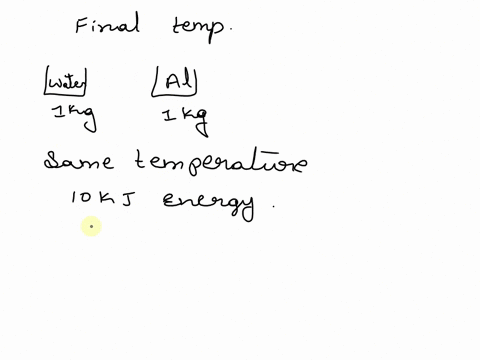 Final temp.
Water Al
1kg 1kg
Same temperature
10KJ energy.